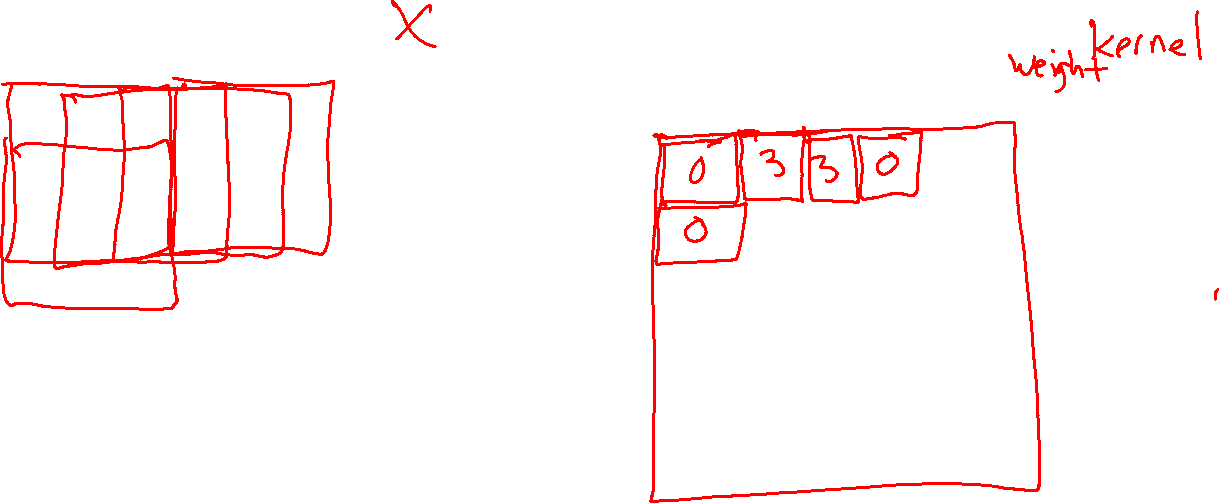 X
weight kernel
0 3 3 0
0